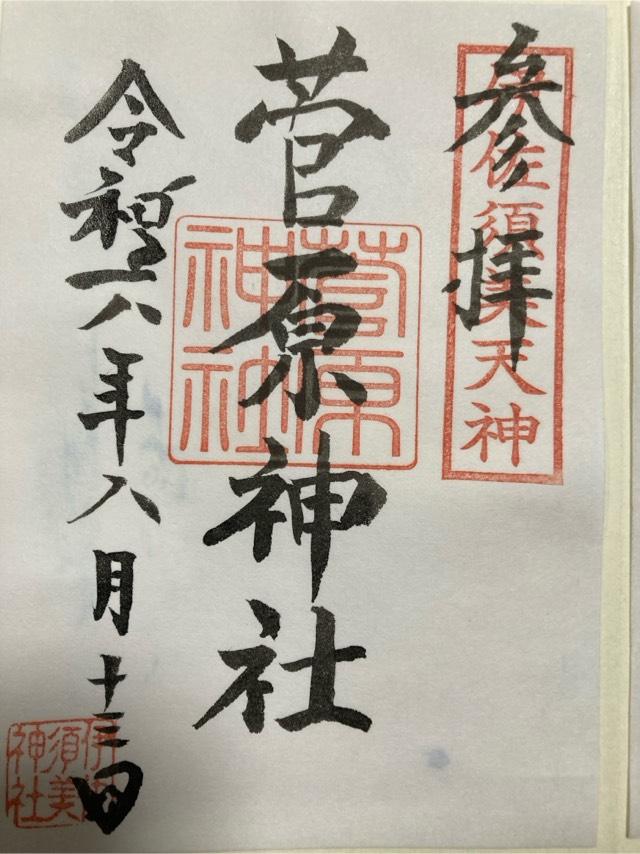 参拝
伊佐須美天神
菅原神社
菅原神社
令和六年八月十三日
伊佐須美神社